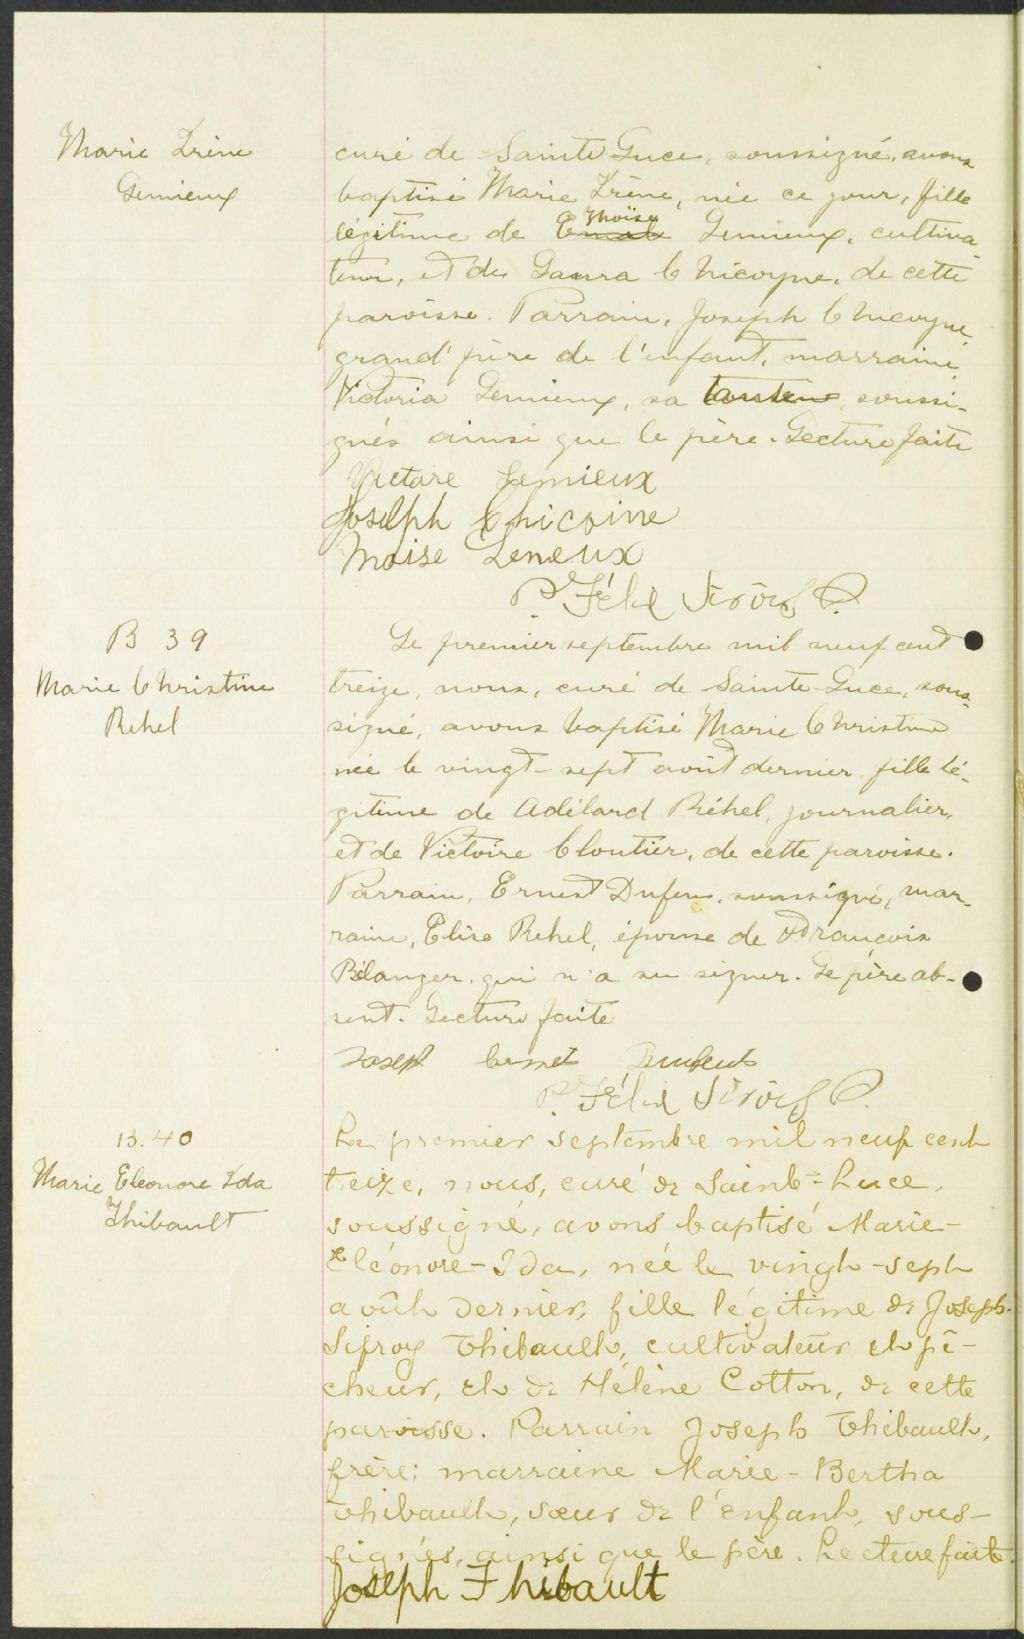 Marie Irène
Lemieux
curé de Sainte Luce, soussigné, avons
baptisé Marie Irène, née ce jour, fille
légitime de Moïse Lemieux, cultiva
teur, et de Laura Chicoyne, de cette
paroisse. Parrain, Joseph Chicoyne,
grand'père de l'enfant, marraine,
Victoria Lemieux, sa soussi-
gnés ainsi que le père. Lecture faite
Lemieux
Joseph Chicoine
Moise Lemeux
P. Félix Sirois P.
B 39
Marie Christine
Rehel
Le premier septembre mil neuf cent
treize, nous, curé de Sainte-Luce, sous-
signé, avons baptisé Marie Christine
née le vingt-sept août dernier fille lé-
gitime de Adélard Réhel, journalier,
et de Victoire Cloutier, de cette paroisse.
Parrain, Ernest soussigné, mar-
raine, Elise Rehel, épouse de François
Bélanger, qui n'a su signer. Le père ab-
sent. Lecture faite
Joseph Ernest
P. Félix Sirois P.
B. 40
Marie Eleonore Ida
Thibault
Le premier septembre mil neuf cent
treize, nous, curé de Saint-Luce,
soussigné, avons baptisé Marie-
Eléonore-Ida, née le vingt-sept
août dernier, fille légitime de Joseph-
Sifroy Thibault, cultivateur et pê-
cheur, et de Hélène Cotton, de cette
paroisse. Parrain Joseph Thibault,
frère; marraine Marie-Bertha
Thibault, sœur de l'enfant, sous-
signés, ainsi que le père. Lecture faite.
Joseph Thibault